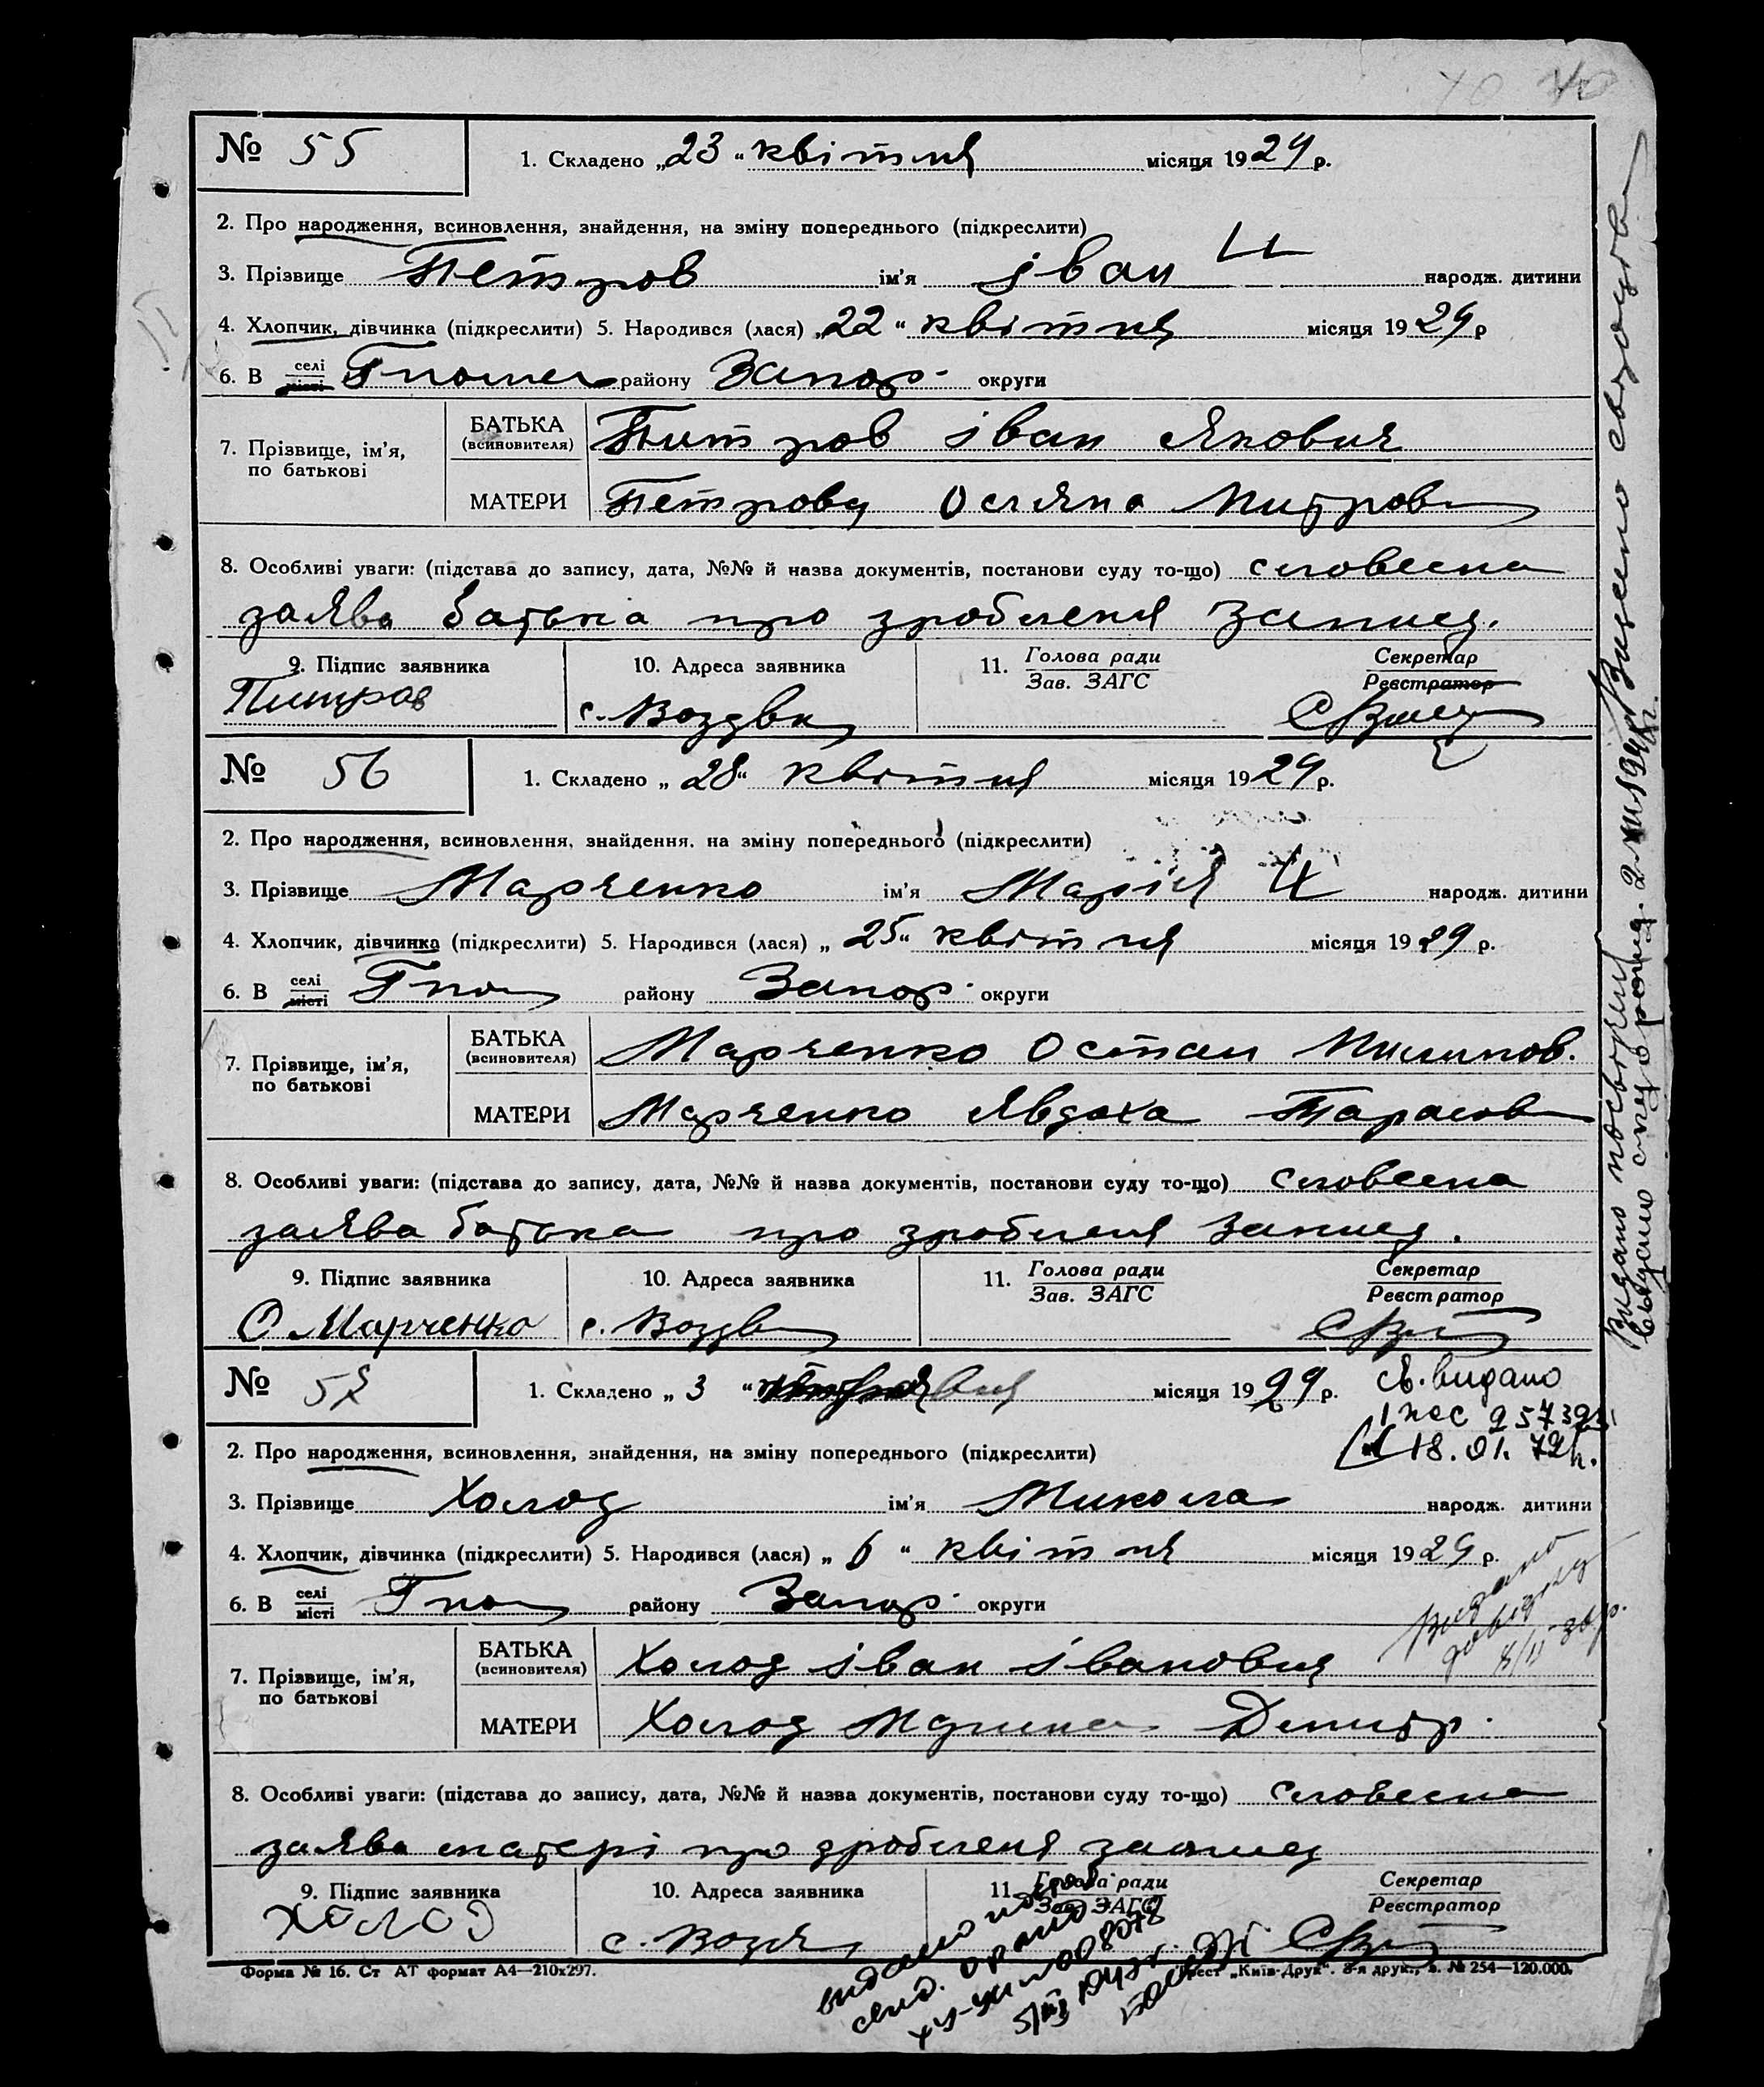 40 40
№ 55 1. Складено „23“ квітня місяця 1929 р.
2. Про народження, всиновлення, знайдення, на зміну попереднього (підкреслити)
3. Прізвище Петров ім'я іван народж. дитини
4. Хлопчик, дівчинка (підкреслити) 5. Народився (лася) „22“ квітня місяця 1929 р
6. В селі місті району Запор. округи
7. Прізвище, ім'я, по батькові
БАТЬКА (всиновителя) Питров іван Якович
МАТЕРИ Петрова Митров
8. Особливі уваги: (підстава до запису, дата, №№ й назва документів, постанови суду то-що) словесна
заява батька про зроблення запису.
9. Підпис заявника 10. Адреса заявника 11. Голова ради Зав. ЗАГС Секретар Реєстратор
Питров с. Воздв
№ 56 1. Складено „28“ квітня місяця 1929 р.
2. Про народження, всиновлення, знайдення, на зміну попереднього (підкреслити)
3. Прізвище Марченко ім'я Марія народж. дитини
4. Хлопчик, дівчинка (підкреслити) 5. Народився (лася) „25“ квітня місяця 1929 р.
6. В селі місті району Запор. округи
7. Прізвище, ім'я, по батькові
БАТЬКА (всиновителя) Марченко Остап
МАТЕРИ Марченко Явдоха Тарасов
8. Особливі уваги: (підстава до запису, дата, №№ й назва документів, постанови суду то-що) словесна
заява батька про зроблення запису.
9. Підпис заявника 10. Адреса заявника 11. Голова ради Зав. ЗАГС Секретар Реєстратор
О Марченко с. Воздв
№ 57 1. Складено „ 3 “ місяця 1929 р.
св. видано
18.01.
2. Про народження, всиновлення, знайдення, на зміну попереднього (підкреслити)
3. Прізвище Холод ім'я Микола народж. дитини
4. Хлопчик, дівчинка (підкреслити) 5. Народився (лася) „ 6 “ квітня місяця 1929 р.
6. В селі місті району Запор. округи
7. Прізвище, ім'я, по батькові
БАТЬКА (всиновителя) Холод іван іванович
МАТЕРИ Холод Дмитр.
8. Особливі уваги: (підстава до запису, дата, №№ й назва документів, постанови суду то-що) словесна
заява матері про зроблення запису
9. Підпис заявника 10. Адреса заявника 11. Голова ради Зав. ЗАГС Секретар Реєстратор
Холод
Форма № 16. Ст АТ формат А4—210x297. Трест „Київ-Друк“. 3-я друк., з. № 254—120.000.
Видано
довідку
видано